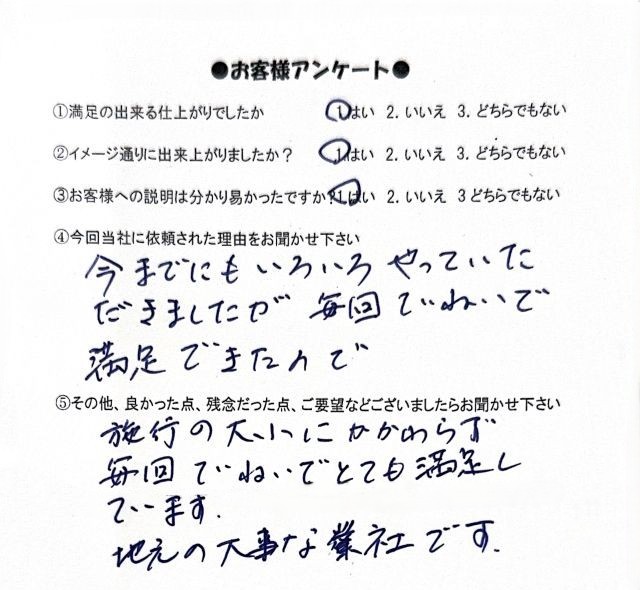 ●お客様アンケート●
①満足の出来る仕上がりでしたか 1.はい 2.いいえ 3.どちらでもない
②イメージ通りに出来上がりましたか? 1.はい 2.いいえ 3.どちらでもない
③お客様への説明は分かり易かったですか?1.はい 2.いいえ 3どちらでもない
④今回当社に依頼された理由をお聞かせ下さい
今までにもいろいろやっていた
だきましたが 毎回ていねいで
満足できたので
⑤その他、良かった点、残念だった点、ご要望などございましたらお聞かせ下さい
施行の大小にかかわらず
毎回ていねいでとても満足し
ています.
地元の大事な業社です.